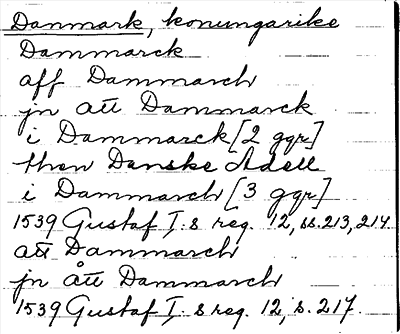 Danmark, konungarike
Dammarck
aff Dammarch
jn att Dammarck
i Dammarck [2 ggr]
then Danske Adell
i Dammarch [3 ggr]
1539 Gustaf I:s reg. 12, ss. 213, 214
att Dammarch
jn ått Dammarch
1539 Gustaf I:s reg. 12, s. 217.